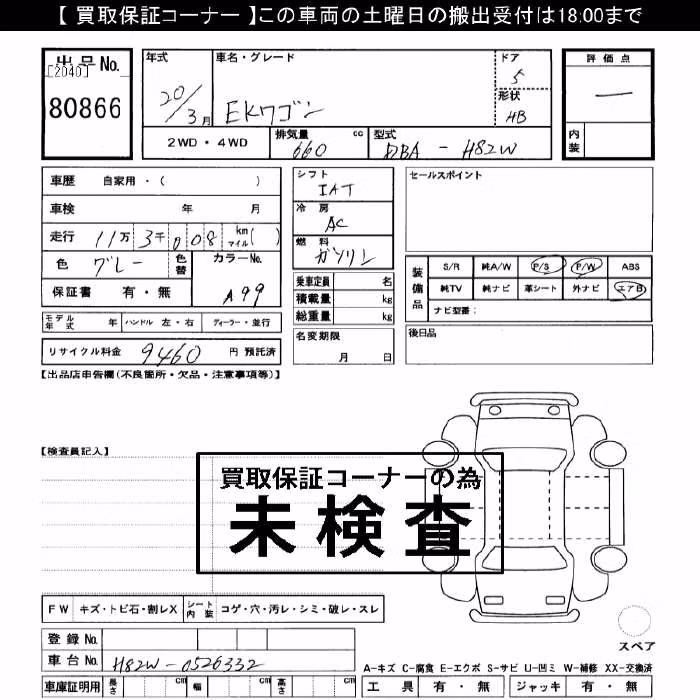 【 買取保証コーナー 】この車両の土曜日の搬出受付は18:00まで
出品No.
[2040]
80866
年式
20/3月
車名・グレード
EKワゴン
ドア
5
形状
HB
評価点
—
内装
2WD・4WD
排気量
660 cc
型式
DBA - H82W
車歴 自家用・( )
車検 年 月
走行 11万3千008 km マイル( )
色 グレー
色替
カラーNo.
A99
保証書 有・無
モデル年式 年 ハンドル 左・右 ディーラー・並行
リサイクル料金 9460 円 預託済
シフト
IAT
冷房
AC
燃料
ガソリン
乗車定員 名
積載量 kg
総重量 kg
名変期限
月 日
セールスポイント
装備品
S/R 純A/W P/S P/W ABS
純TV 純ナビ 革シート 外ナビ エアB
ナビ型番:
後日品
【出品店申告欄(不良箇所・欠品・注意事項等)】
【検査員記入】
買取保証コーナーの為
未検査
FW キズ・トビ石・割レX シート内装 コゲ・穴・汚レ・シミ・破レ・スレ
登録No.
車台No. H82W-0526332
車庫証明用 長さ cm 幅 cm 高さ cm
スペア
A-キズ C-腐食 E-エクボ S-サビ U-凹ミ W-補修 XX-交換済
工具 有・無 ジャッキ 有・無